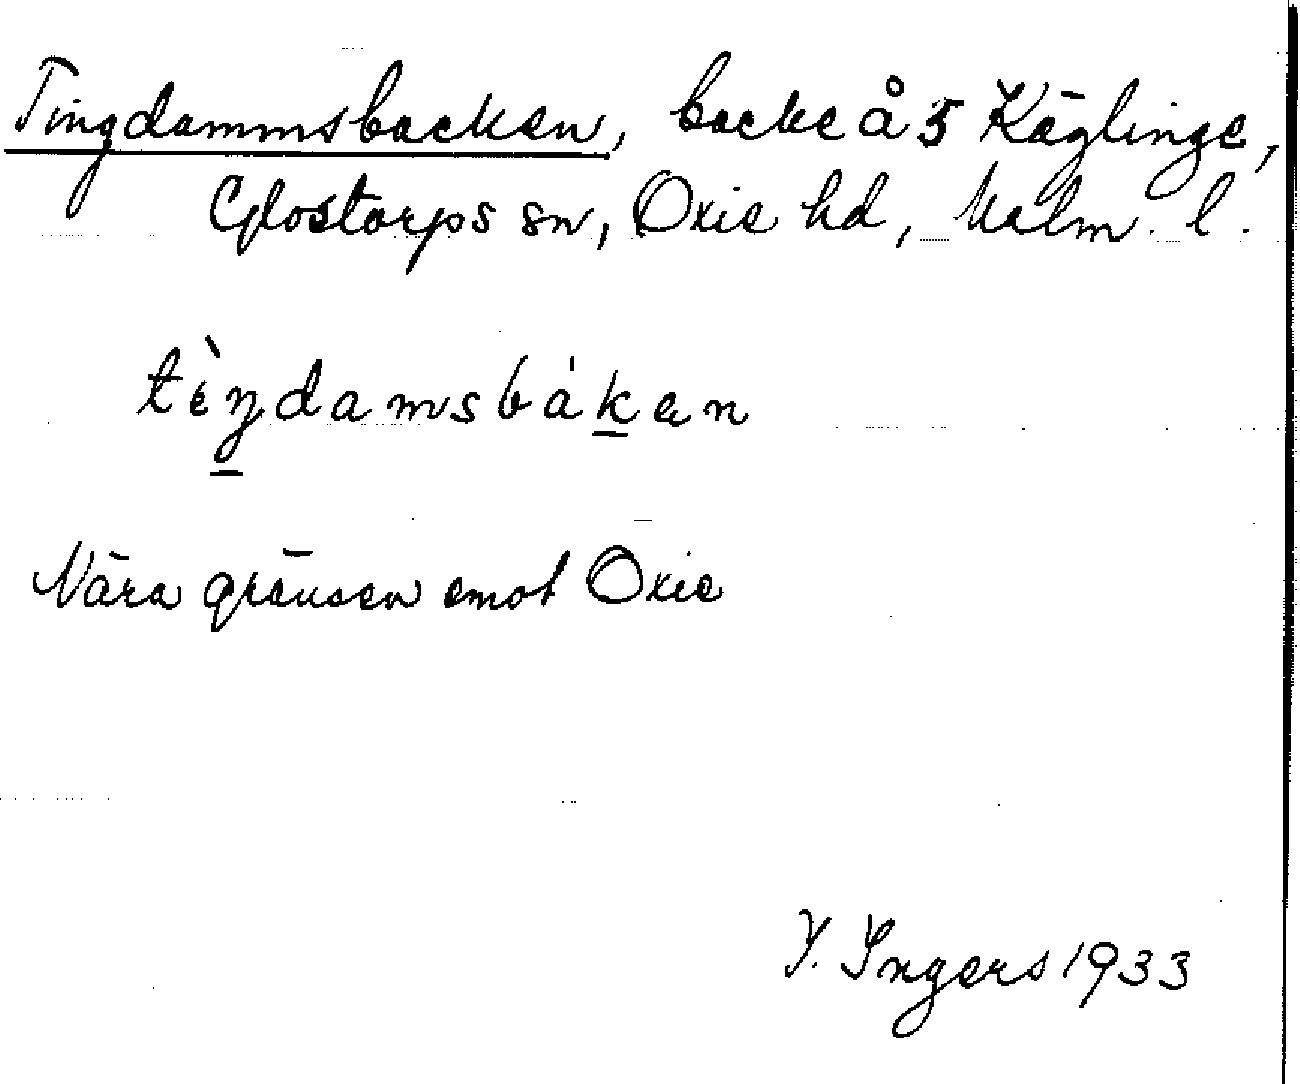 Tingdammsbacken, backe å 5 Käglinge,
Glostorps sn, Oxie hd, Malm. l.
tèŋdamsbákan
Nära gränsen emot Oxie
I. Ingers 1933